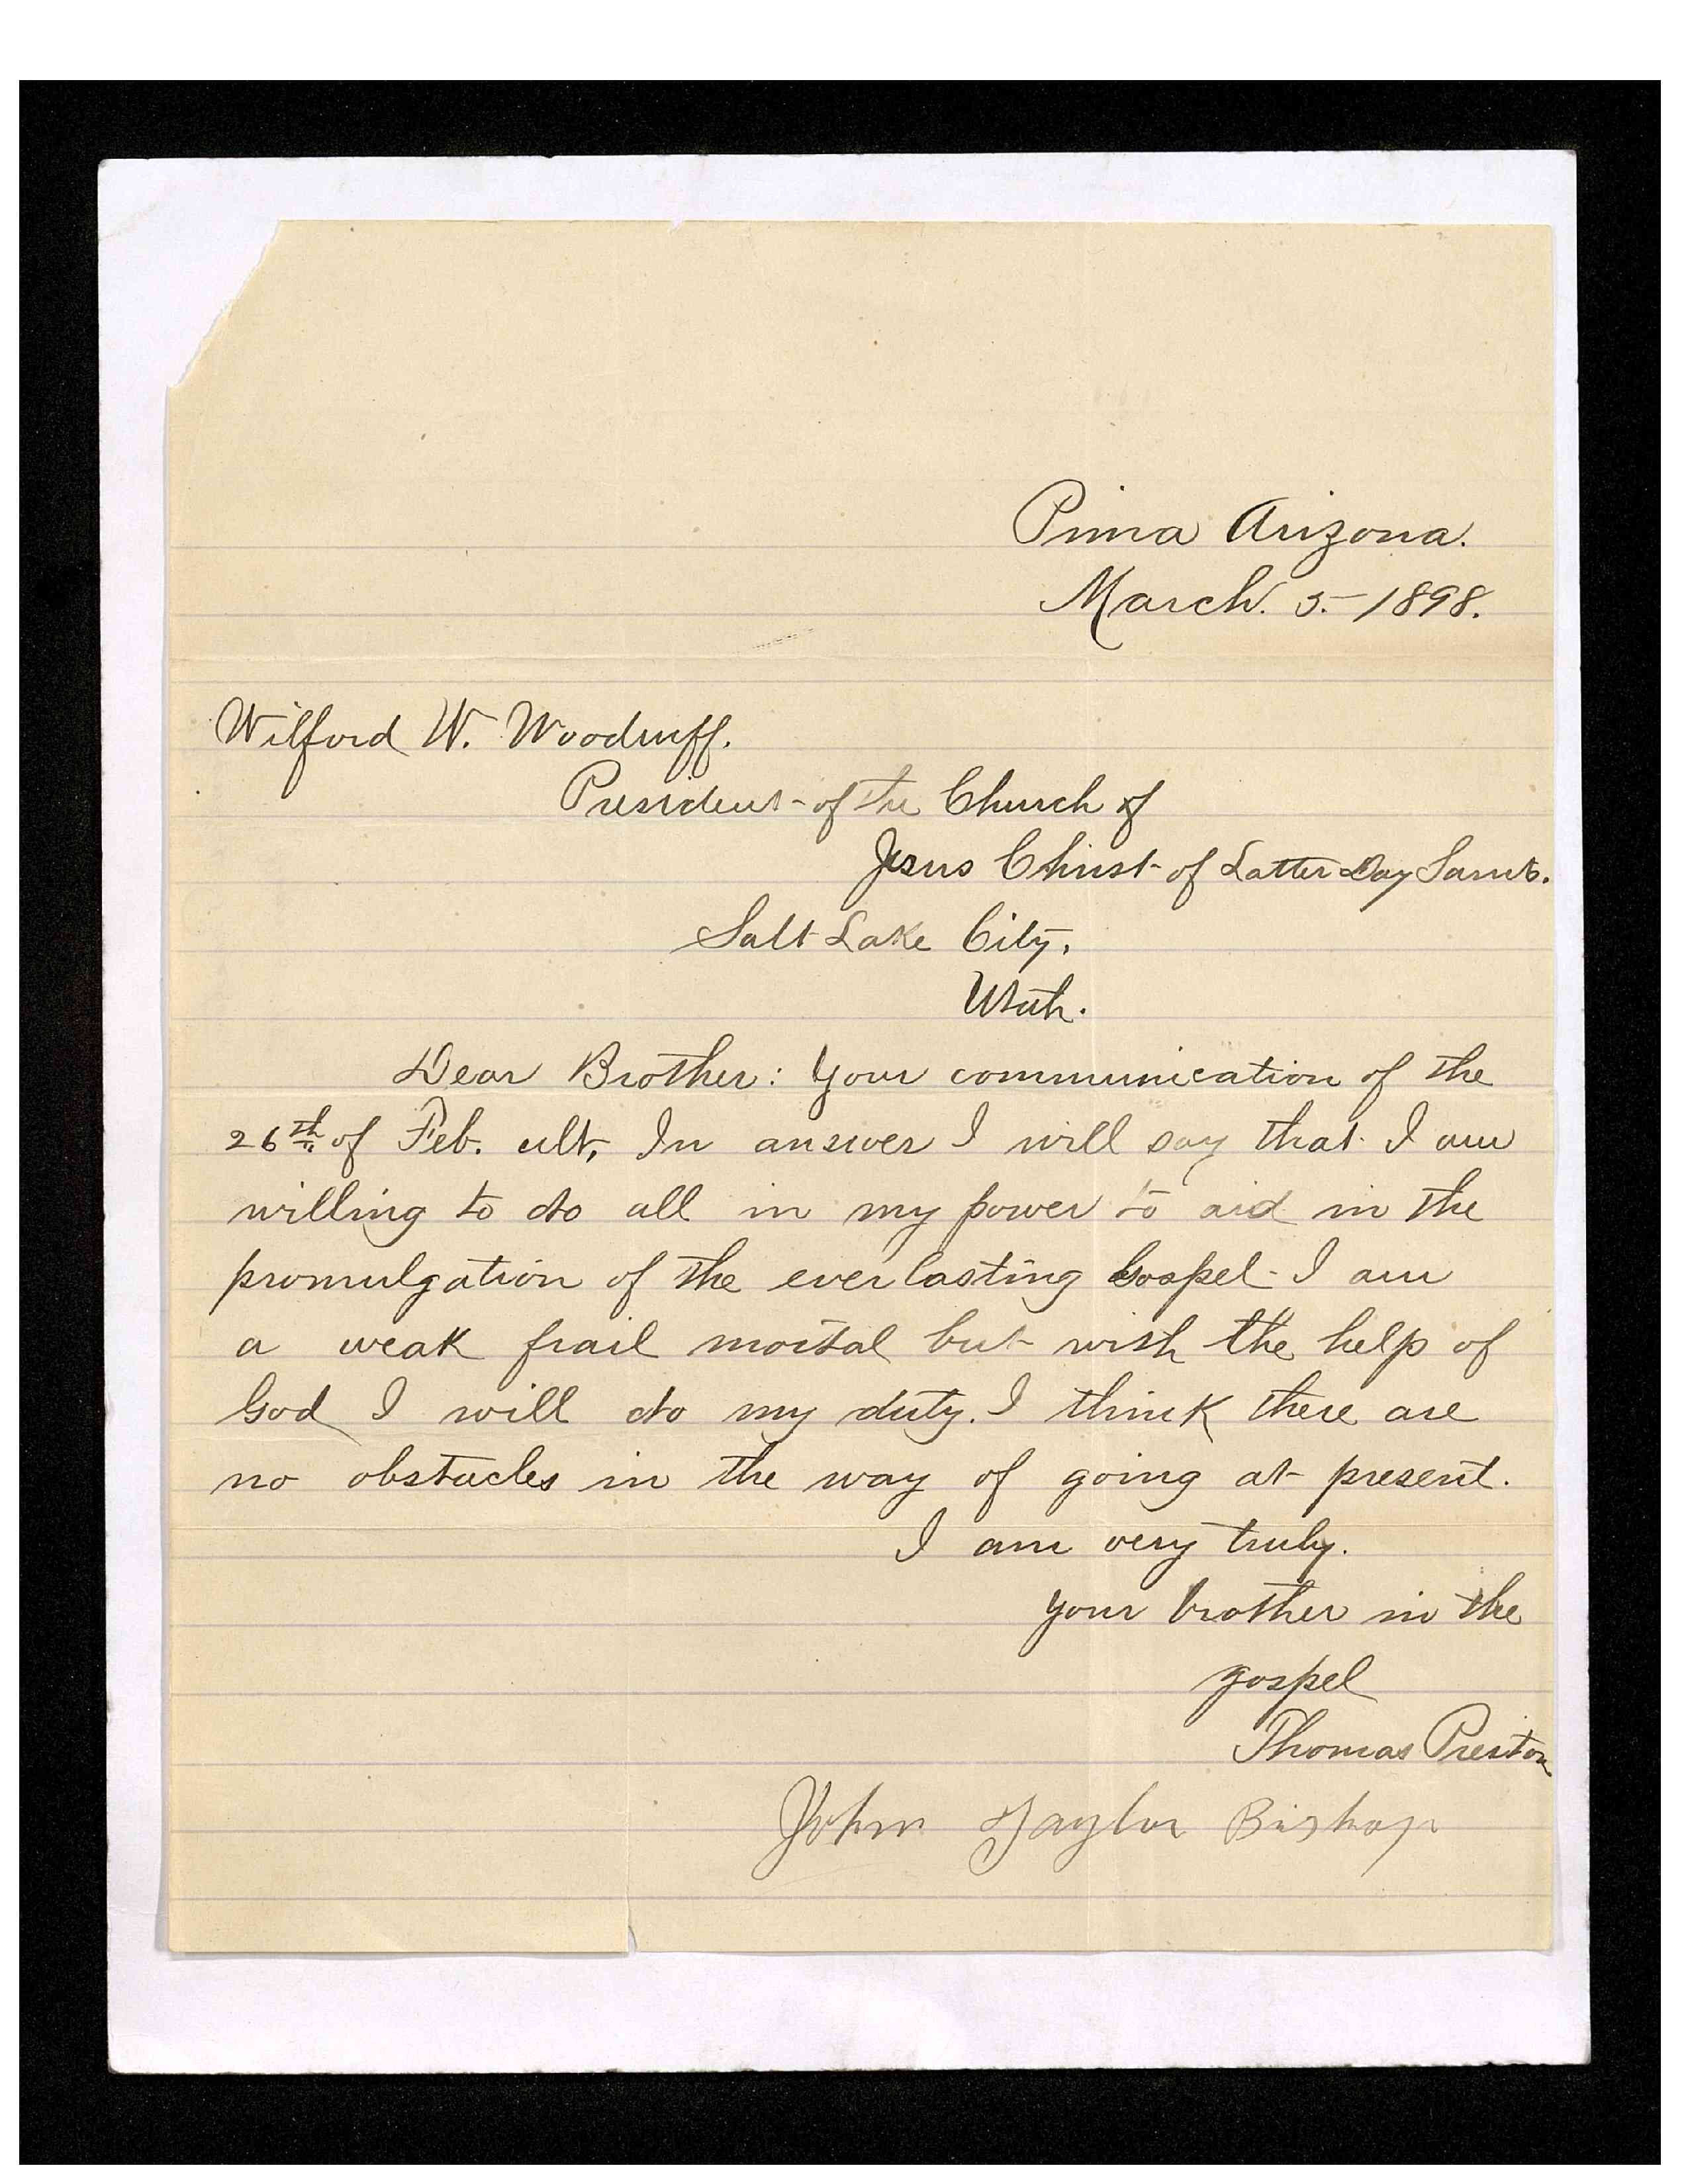 Pima Arizona.
March. 5.- 1898.
Wilford W. Woodruff.
President- of the Church of
Jesus Christ- of Latter Day Saints.
Salt Lake City,
Utah.
Dear Brother: Your communication of the
26th of Feb. ult, In answer I will say that I am
willing to do all in my power to aid in the
promulgation of the everlasting Gospel- I am
a weak frail mortal but with the help of
God I will do my duty. I think there are
no obstacles in the way of going at present.
I am very truly.
your brother in the
gospel
Thomas Preston
John Taylor Bishop